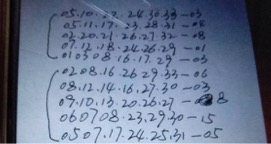 05.10.22.24.30.33-03
05.11.17.23.28.31-08
02.20.21.26.27.32-08
07.12.18.24.26.29-01
010308.16.17.29-03
0208.16.26.29.33-06
08.12.14.16.27.30-03
09.10.13.20.26.27-8
060708.23.29.30-15
0507.17.24.25.31-05